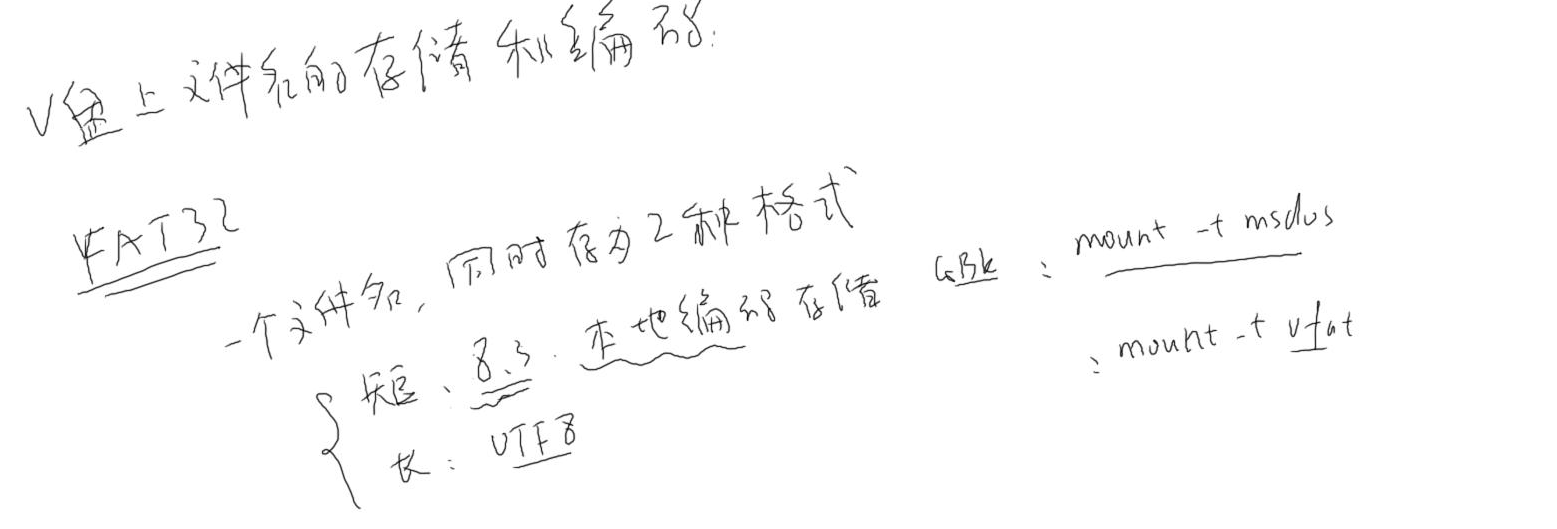 U盘上文件名的存储和编码:
FAT32
一个文件名, 同时存为2种格式
短、8.3. 本地编码存储 GBK : mount -t msdos
长: UTF8 : mount -t vfat